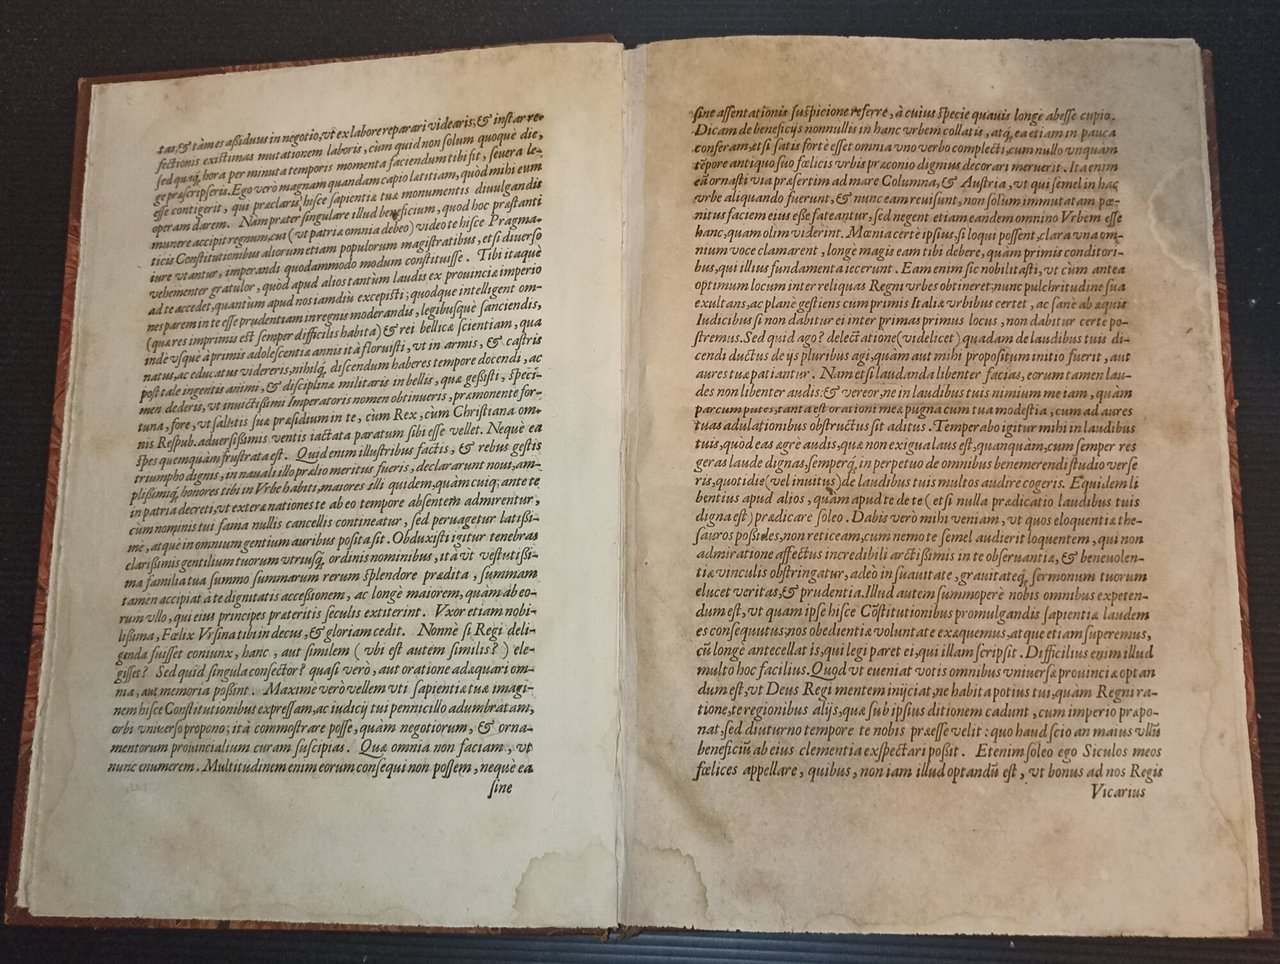 tas, & tàmes aßiduus in negotio, vt ex labore reparari videaris, & instar re-
fectionis existimas mutationem laboris, cùm quid non solum quoquè die,
sed quaq́, hora per minuta temporis momenta faciendum tibi sit, seuera le-
ge præscripseris. Ego verò magnam quandam capio lætitiam, quòd mihi eum
esse contigerit, qui præclaris hisce sapientiæ tuæ monumentis diuulgandis
operam darem. Nam præter singulare illud beneficium, quod hoc præstanti
munere accipit regnum, cui (vt patriæ omnia debeo) video te hisce Pragma-
ticis Constitutionibus aliorum etiam populorum magistratibus, etsi diuerso
iure vtantur, imperandi quodammodo modum constituisse. Tibi itaquè
vehementer gratulor, quòd apud alios tantùm laudis ex prouinciæ imperio
ad te accedet, quantùm apud nos iamdiu excepisti; quodque intelligent om-
nes parem in te esse prudentiam in regnis moderandis, legibusquè sanciendis,
(quæ res imprimis est semper difficilis habita) & rei bellicæ scientiam, qua
indè vsque à primis adolescentiæ annis ità floruisti, vt in armis, & castris
natus, ac educatus videreris, nihilq́, discendum haberes tempore docendi, ac
post tale ingentis animi, & disciplinæ militaris in bellis, quæ geßisti, speci-
men dederis, vt inuictißimi Imperatoris nomen obtinueris, præmonente for-
tuna, fore, vt salutis suæ præsidium in te, cùm Rex, cùm Christiana om-
nis Respub. aduersißimis ventis iactata paratum sibi esse vellet. Neque ea
spes quemquàm frustrata est. Quid enim illustribus factis, & rebus gestis
triumpho dignis, in nauali illo prælio meritus fueris, declararunt noui, am-
plißimiq́, honores tibi in Vrbe habiti, maiores illi quidem, quàm cuiq; ante te
in patria decreti, vt exteræ nationes te ab eo tempore absentem admirentur,
cùm nominis tui fama nullis cancellis contineatur, sed peruagetur latißi-
mè, atquè in omnium gentium auribus posita sit. Obduxisti igitur tenebras
clarißimis gentilium tuorum vtriusq́, ordinis nominibus, ità vt vestutißi-
ma familia tua summo summarum rerum splendore prædita, summam
tamen accipiat à te dignitatis acceßionem, ac longè maiorem, quàm ab eo-
rum vllo, qui eius principes præteritis seculis extiterint. Vxor etiam nobi-
lißima, Fœlix Vrsina tibi in decus, & gloriam cedit. Nonnè si Regi deli-
genda fuisset coniunx, hanc, aut similem (vbi est autem similis?) ele-
gisset? Sed quid singula consector? quasi verò, aut oratione adæquari om-
nia, aut memoria poßint. Maxime verò vellem vti sapientiæ tuæ imagi-
nem hisce Constitutionibus expressam, ac iudicij tui pennicillo adumbratam,
orbi vniuerso propono; ità commostrare posse, quàm negotiorum, & orna-
mentorum prouincialium curam suscipias. Quæ omnia non faciam, vt
nunc enumerem. Multitudinem enim eorum consequi non possem, neque ea
sine
sine assentationis suspicione referre, à cuius specie quauis longè abesse cupio.
Dicam de beneficijs nonnullis in hanc vrbem collatis, atq́, ea etiam in pauca
conferam, etsi satis fortè esset omnia vno verbo complecti, cum nullo vnquam
tẽpore antiquo suo fœlicis vrbis præconio dignius decorari meruerit. Ita enim
eã ornasti via præsertim ad mare Columna, & Austria, vt qui semel in hac
vrbe aliquando fuerunt, & nunc eam reuisunt, non solum immutatam pœ-
nitus faciem eius eße fateantur, sed negent etiam eandem omnino Vrbem esse
hanc, quam olim viderint. Mœnia certè ipsius, si loqui possent, clara vna om-
nium voce clamarent, longè magis eam tibi debere, quàm primis conditori-
bus, qui illius fundamenta iecerunt. Eam enim sic nobilitasti, vt cùm antea
optimum locum inter reliquas Regni vrbes obtineret; nunc pulchritudine sua
exultans, ac planè gestiens cum primis Italiæ vrbibus certet, ac sanè ab æquis
Iudicibus si non dabitur ei inter primas primus locus, non dabitur certe po-
stremus. Sed quid ago? delectatione (videlicet) quadam de laudibus tuis di-
cendi ductus de ijs pluribus agi, quàm aut mihi propositum initio fuerit, aut
aures tuæ patiantur. Nam etsi laudanda libenter facias, eorum tamen lau-
des non libenter audis: & vereor, ne in laudibus tuis nimium me iam, quàm
parcum putes, tanta est orationi meæ pugna cum tua modestia, cum ad aures
tuas adulationibus obstructus sit aditus. Temperabo igitur mihi in laudibus
tuis, quòd eas ægrè audis, quæ non exigua laus est, quanquàm, cum semper res
geras laude dignas, semperq́, in perpetuo de omnibus benemerendi studio verse
ris, quotidie (vel inuitus) de laudibus tuis multos audire cogeris. Equidem li
bentius apud alios, quàm apud te de te (etsi nulla prædicatio laudibus tuis
digna est) prædicare soleo. Dabis verò mihi veniam, vt quos eloquentiæ the-
sauros poßides, non reticeam, cum nemo te semel audierit loquentem, qui non
admiratione affectus incredibili arctißimis in te obseruantiæ, & beneuolen-
tiæ vinculis obstringatur, adeò in suauitate, grauitateq́, sermonum tuorum
elucet veritas, & prudentia. Illud autem summoperè nobis omnibus expeten-
dum est, vt quam ipse hisce Cõstitutionibus promulgandis sapientiæ laudem
es consequutus; nos obedientiæ voluntate exæquemus, atque etiam superemus,
cũ longè antecellat is, qui legi paret ei, qui illam scripsit. Difficilius enim illud
multo hoc facilius. Quod vt eueniat votis omnibus vniuersæ prouinciæ optan
dum est, vt Deus Regi mentem inijciat, ne habita potius tui, quàm Regni ra-
tione, te regionibus alijs, quæ sub ipsius ditionem cadunt, cum imperio præpo-
nat, sed diuturno tempore te nobis præesse velit: quo haud scio an maius vllũ
beneficiũ ab eius clementia exspectari poßit. Etenim soleo ego Siculos meos
fœlices appellare, quibus, non iam illud optandũ est, vt bonus ad nos Regis
Vicarius